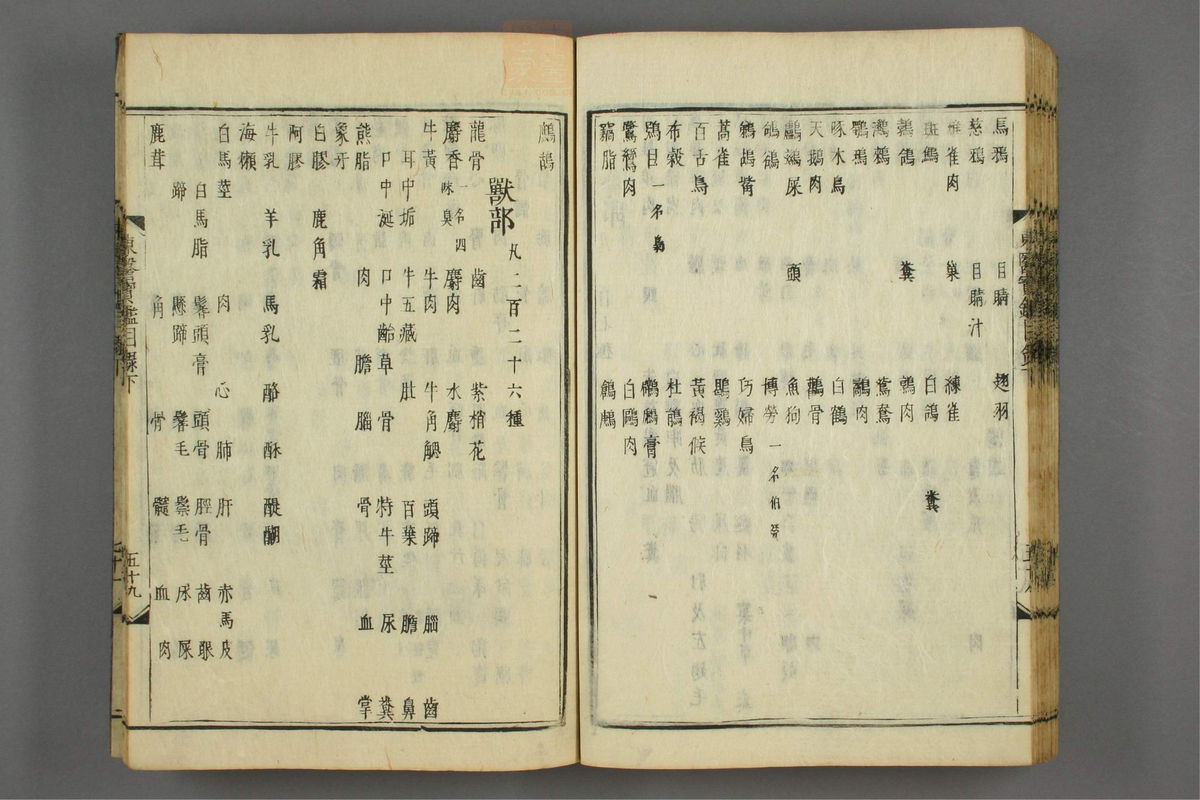 烏鴉 目睛 翅羽
慈鴉 目睛汁
雄雀肉 巢 練雀
斑鷦 白鴿 糞
鵓鴿 糞 鶉肉
鸂鷘 鴛鴦
鸀鴉 鷸肉
啄水鳥 白鶴
天鵝肉 鸛骨
鸕鷀屎 頭 魚狗
鴝鵒 博勞 一名伯勞
鵜鴣觜 巧婦鳥
蒿雀 鶡雞
百舌鳥 黃褐候
布穀 杜鵑
鴞目 一名梟 鸊鷉膏
鷺鷥肉 白鷗肉
竊脂
鷓鴣
獸部 凡一百二十六種
龍骨 齒 紫梢花
麝香 一名四味臭 麝肉 水麝
牛黃 牛肉 牛角䚡 頭蹄 腦 齒
耳中垢 牛五藏 肚 百葉 膽 鼻
口中涎 口中齝草 骨 特牛莖 尿 糞
熊脂 肉 膽 腦 骨 血 掌
象牙
白膠 鹿角霜
阿膠
牛乳 羊乳 馬乳 酪 酥 醍醐
海獺
白馬莖 肉 心 肺 肝 赤馬皮
白馬脂 鬐頭膏 頭骨 脛骨 齒 眼
蹄 懸蹄 鬐毛 鬃毛 尿 屎
鹿茸 角 骨 髓 血 肉
東醫寶鑑目錄下
五十九